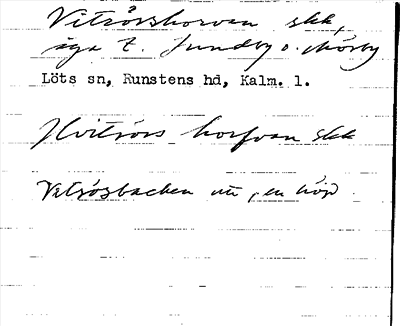 Vitrörshorvan skk,
äga t. Sundby o. Mörby
Löts sn, Runstens hd, Kalm. l.
Hvitrörs horfvan skk
Vitrösbacken , en höjd.